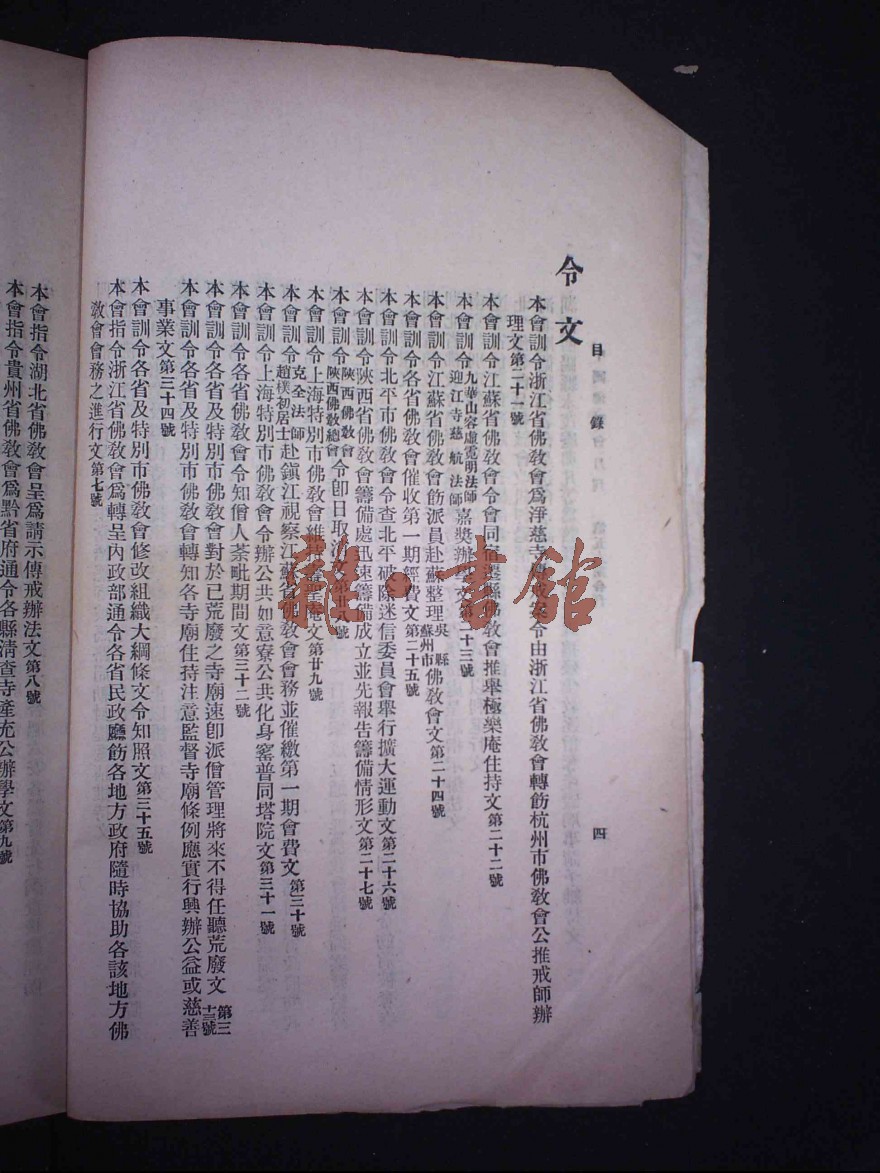 目錄
四
令文
本會訓令浙江省佛敎會爲淨慈寺傳戒案令由浙江省佛敎會轉飭杭州市佛敎會公推戒師辦
理文第二十一號
本會訓令江蘇省佛敎會令會同宿遷縣佛敎會推舉極樂庵住持文第二十二號
本會訓令九華山容虛霓明法師迎江寺慈航法師嘉奬辦學文第二十三號
本會訓令江蘇省佛敎會飭派員赴蘇整理吳縣蘇州市佛敎會文第二十四號
本會訓令各省佛敎會催收第一期經費文第二十五號
本會訓令北平市佛敎會令查北平破除迷信委員會舉行擴大運動文第二十六號
本會訓令陝西省佛敎會籌備處迅速籌備成立並先報告籌備情形文第二十七號
本會訓令陝西佛敎會陝西佛敎總會令卽日取消文第廿八號
本會訓令上海特別市佛敎會維持聖庵文第廿九號
本會訓令克全法師趙樸初居士赴鎭江視察江蘇省佛敎會會務並催繳第一期會費文第三十號
本會訓令上海特別市佛敎會令辦公共如意寮公共化身窰普同塔院文第三十一號
本會訓令各省佛敎會令知僧人荼毗期間文第三十二號
本會訓令各省及特別市佛敎會對於已荒廢之寺廟速卽派僧管理將來不得任聽荒廢文第三十三號
本會訓令各省及特別市佛敎會轉知各寺廟住持注意監督寺廟條例應實行興辦公益或慈善
事業文第三十四號
本會訓令各省及特別市佛敎會修改組織大綱條文令知照文第三十五號
本會指令浙江省佛敎會爲轉呈內政部通令各省民政廳飭各地方政府隨時協助各該地方佛
敎會會務之進行文第七號
本會指令湖北省佛敎會呈爲請示傳戒辦法文第八號
本會指令貴州省佛敎會爲黔省府通令各縣淸查寺產充公辦學文第九號
龍·書館